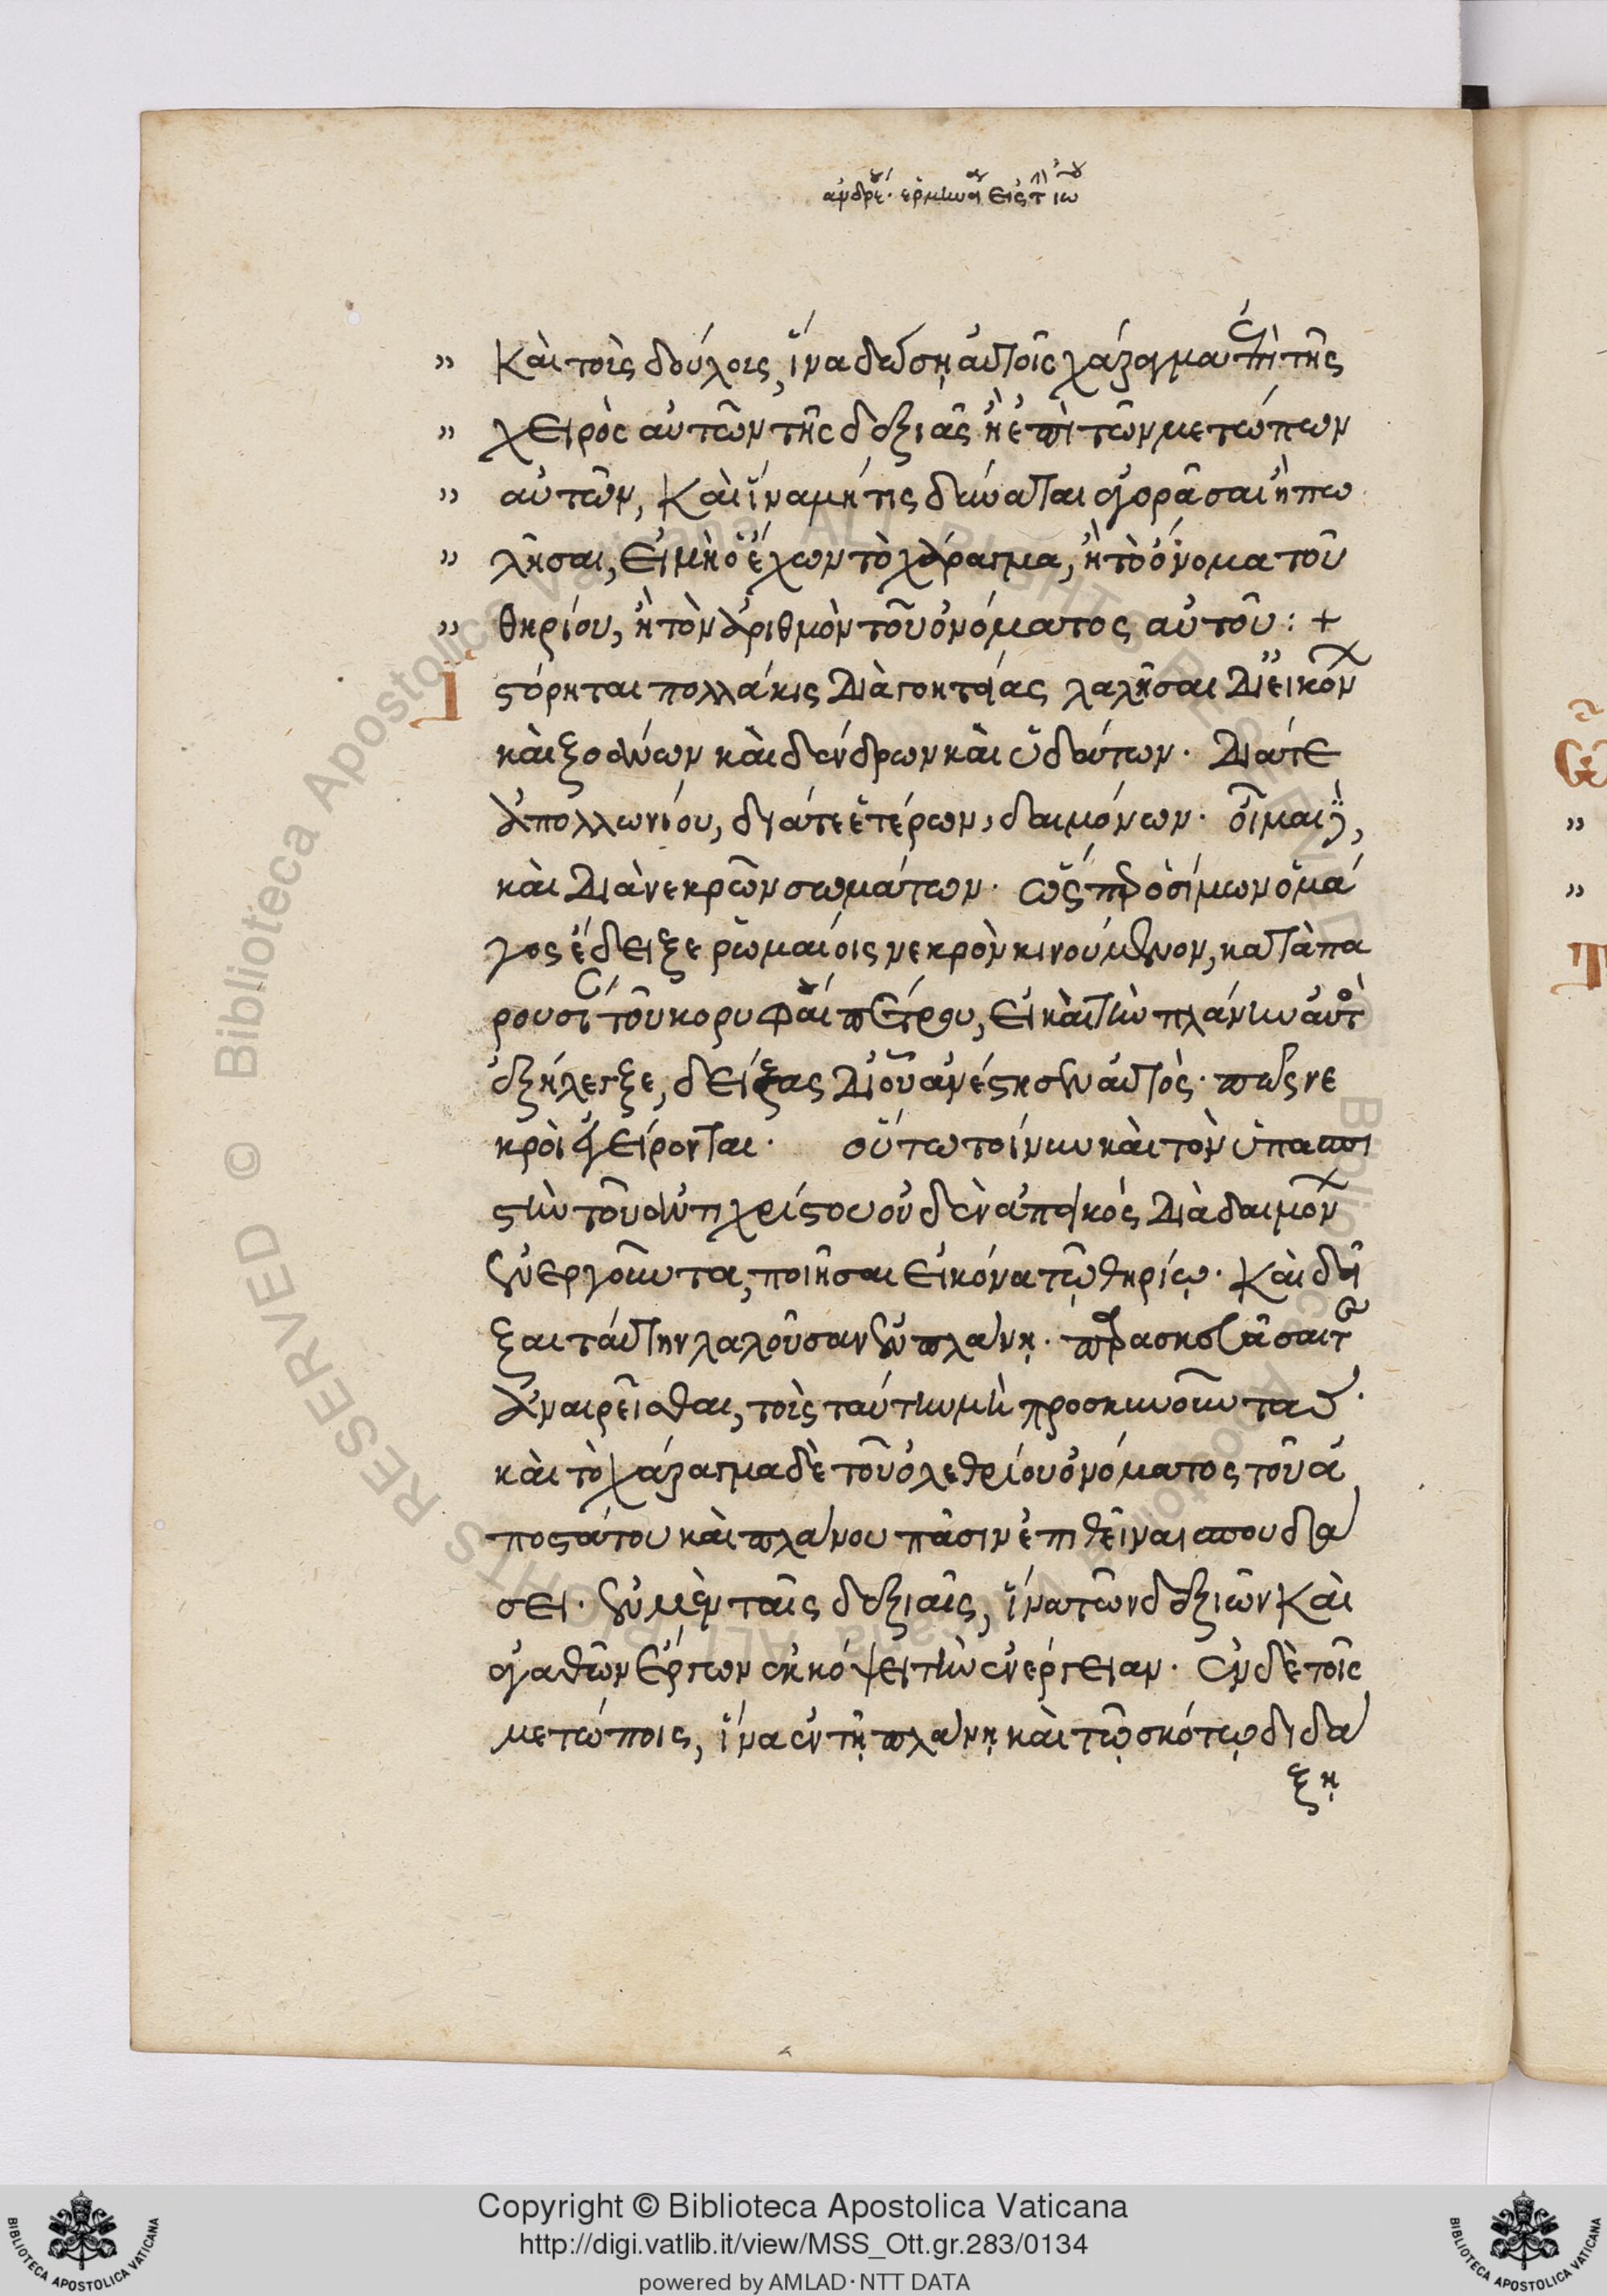 ἀνδρέου ἑρμηνεία εἰς τὴν ἰω
" Καὶ τοῖς δούλοις, ἵνα δώσῃ αὐτοῖς χάραγμα ἐπὶ τῆς
" χειρὸς αὐτῶν τῆς δεξιᾶς ἢ ἐπὶ τῶν μετώπων
" αὐτῶν, Καὶ ἵνα μή τις δύναται ἀγορᾶσαι ἢ πω
" λῆσαι, εἰ μὴ ὁ ἔχων τὸ χάραγμα, ἢ τὸ ὄνομα τοῦ
" θηρίου, ἢ τὸν ἀριθμὸν τοῦ ὀνόματος αὐτοῦ: +
Ἱστόρηται πολλάκις διὰ γοητείας λαλῆσαι δι' εἰκόνων
καὶ ξοάνων καὶ δένδρων καὶ ὑδάτων. διά τε
Ἀπολλωνίου, διά τε ἑτέρων, δαιμόνων. οἶμαι δὲ,
καὶ διὰ νεκρῶν σωμάτων. ὥσπερ ὁ σίμων ὁ μά
γος ἔδειξε ῥωμαίοις νεκρὸν κινούμενον, κατὰ πα
ρουσίαν τοῦ κορυφαίου πέτρου, εἰ καὶ τὴν πλάνην αὐτὸς
ἐξήλεγξε, δείξας δι' οὗ ἀνέστησεν αὐτὸς. πῶς νε
κροὶ ἐγείρονται. οὕτω τοίνυν καὶ τὸν ὑπασπι
στὴν τοῦ ἀντιχρίστου οὐδὲν ἀπεικός διὰ δαιμόνων
ἐνεργοῦντα, ποιῆσαι εἰκόνα τῷ θηρίῳ. Καὶ δεῖ
ξαι ταύτην λαλοῦσαν ἐν πλάνῃ. παρασκευᾶσαι τε
ἀναιρεῖσθαι, τοῖς ταύτην μὴ προσκυνοῦντας.
καὶ τὸ χάραγμα δὲ τοῦ ὀλεθρίου ὀνόματος τοῦ ἀ
ποστάτου καὶ πλάνου πᾶσιν ἐπιθεῖναι σπουδά
σει. ἐν μὲν ταῖς δεξιαῖς, ἵνα τῶν δεξιῶν Καὶ
ἀγαθῶν ἔργων ἐκκόψει τὴν ἐνέργειαν. ἐν δὲ τοῖς
μετώποις, ἵνα ἐν τῇ πλάνῃ καὶ τῷ σκότῳ διδά
ξῃ
Copyright © Biblioteca Apostolica Vaticana
http://digi.vatlib.it/view/MSS_Ott.gr.283/0134
powered by AMLAD · NTT DATA
BIBLIOTECA APOSTOLICA VATICANA
BIBLIOTECA APOSTOLICA VATICANA